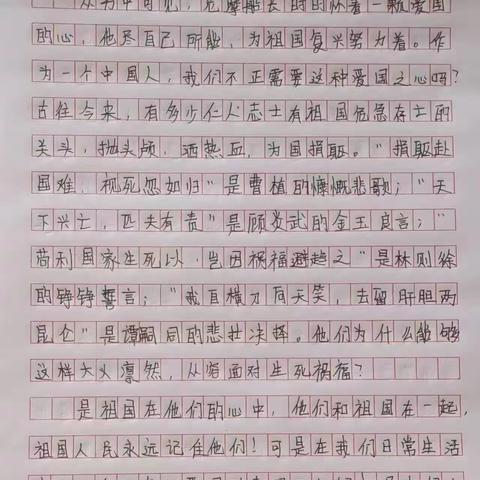 从书中可见，
的心，他尽自己所能，为祖国复兴努力着。作
为一个中国人，我们不正需要这种爱国之心吗？
古往今来，有多少仁人志士有祖国危急存亡的
关头，抛头颅，洒热血，为国捐躯。"捐躯赴
国难，视死忽如归"是曹植的慷慨悲歌；"天
下兴亡，匹夫有责"是顾炎武的金玉良言；"
苟利国家生死以，岂因祸福避趋之"是林则徐
的铮铮誓言；"我自横刀向天笑，去留肝胆两
昆仑"是谭嗣同的悲壮决择。他们为什么能够
这样大义凛然，从容面对生死祸福？
是祖国在他们的心中，他们和祖国在一起，
祖国人民永远记住他们！可是在我们日常生活